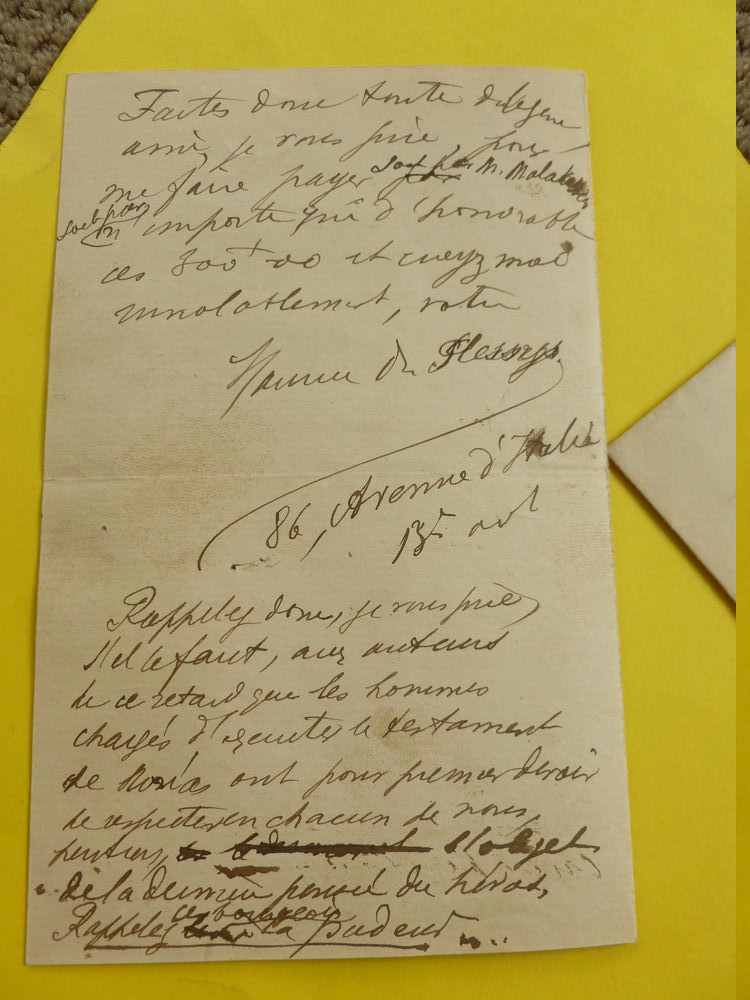 Faites donc toute diligence
ami, je vous prie, pour
me faire payer soit par M. Malate
soit par
n' importe qui d'honorable
ces 300 f 00 et croyez moi
votre
Maurice du Plessys
86, Avenue d'Italie
13e arrt
Rappelez donc, je vous prie,
s'il le faut, aux auteurs
de ce retard que les hommes
chargés d'exécuter le testament
de Moréas ont pour premier devoir
de respecter en chacun de nous,
héritiers, l'objet
de la dernière pensée du héros.
Rappelez ces bourgeois à la pudeur...